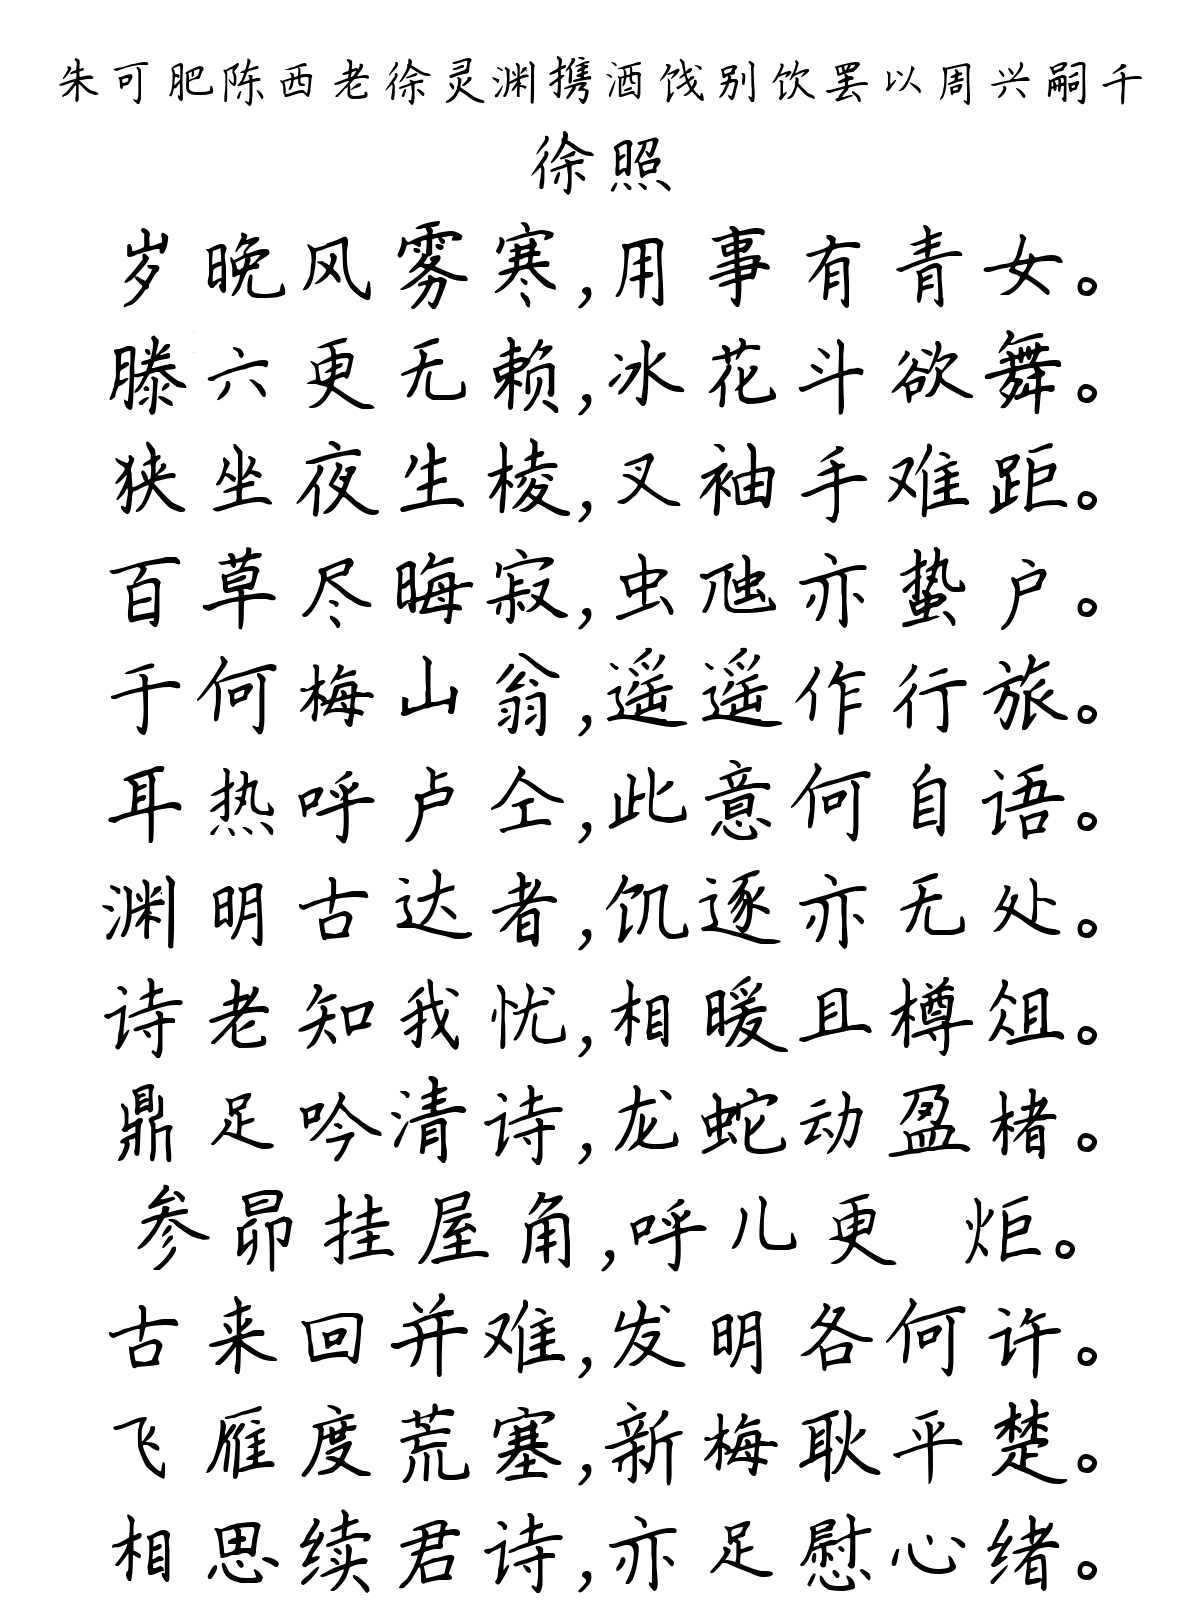 朱可肥陈西老徐灵渊携酒饯别饮罢以周兴嗣千
徐照
岁晚风雾寒,用事有青女。
滕六更无赖,冰花斗欲舞。
狭坐夜生棱,叉袖手难距。
百草尽晦寂,虫虺亦蛰户。
于何梅山翁,遥遥作行旅。
耳热呼卢仝,此意何自语。
渊明古达者,饥逐亦无处。
诗老知我忧,相暖且樽俎。
鼎足吟清诗,龙蛇动盈楮。
参昴挂屋角,呼儿更 炬。
古来回并难,发明各何许。
飞雁度荒塞,新梅耿平楚。
相思续君诗,亦足慰心绪。